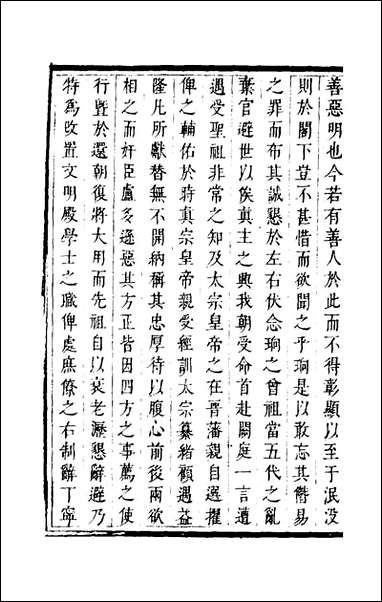 善惡明也今若有善人於此而不得彰顯以至于泯沒
則於閣下豈不甚惜而欲聞之乎珣是以敢忘其僭易
之罪而布其誠懇於左右伏念珣之曾祖當五代之亂
棄官避世以俟真主之興我朝受命首赴闕庭一言遭
遇受聖祖非常之知及太宗皇帝之在晉藩親自選擢
俾之輔佑於時真宗皇帝親受經訓太宗纂緒顧遇益
隆凡所獻替無不開納稱其忠厚待以腹心前後兩欲
相之而奸臣盧多遜惡其方正皆因四方之事薦之使
行暨於還朝復將大用而先祖自以衰老瀝懇辭避乃
特為改置文明殿學士之職俾處庶僚之右制辭丁寧